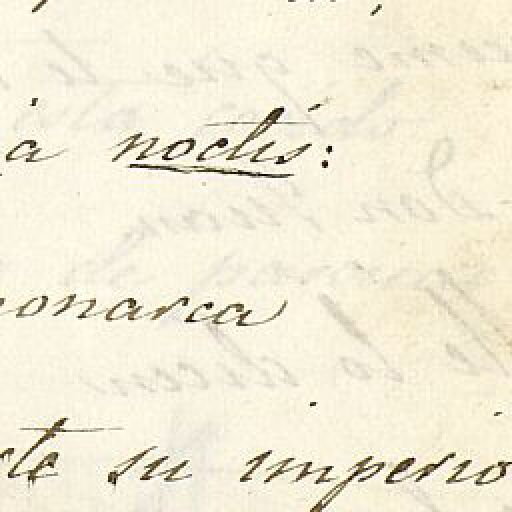 a noctis:
monarca
rte su imperio